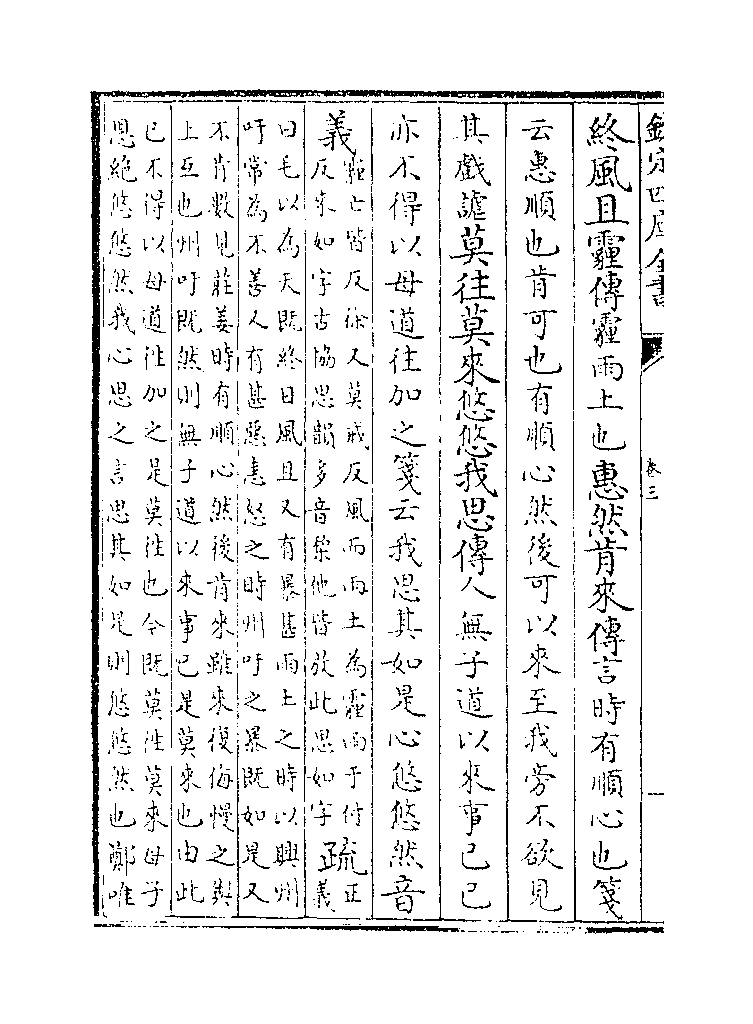 欽定四庫全書 卷三
終風且霾傳霾雨土也惠然肯來傳言時有順心也箋
云惠順也肯可也有順心然後可以來至我旁不欲見
其戲謔莫往莫來悠悠我思傳人無子道以來事已已
亦不得以母道往加之箋云我思其如是心悠悠然音
義霾亡皆反徐又莫戒反風而雨土為霾雨于付
反來如字古協思韻多音棃他皆放此思如字疏正
義
曰毛以為天既終日風且又有暴甚雨土之時以興州
吁常為不善又有甚惡恚怒之時州吁之暴既如是又
不肯數見莊姜時有順心然後肯來雖來復侮慢之與
上互也州吁既然則無子道以來事已是莫來也由此
已不得以母道往加之是莫往也今既莫往莫來母子
恩絶悠悠然我心思之言思其如是則悠悠然也鄭唯